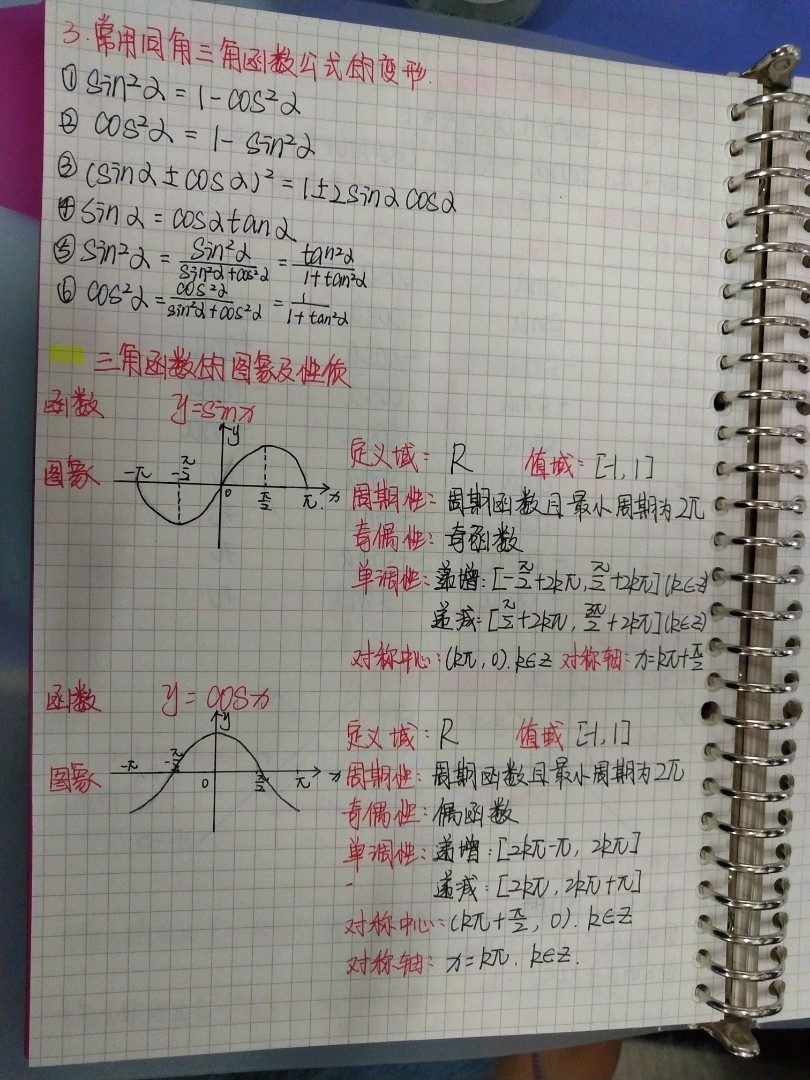 3.常用同角三角函数公式的变形.
① sin²α = 1-cos²α
② cos²α = 1- sin²α
③ (sinα±cosα)² = 1±2sinαcosα
④ sinα = cosαtanα
⑤ sin²α = sin²α/(sin²α+cos²α) = tan²α/(1+tan²α)
⑥ cos²α = cos²α/(sin²α+cos²α) = 1/(1+tan²α)
三角函数的图象及性质
函数 y=sinx
图象 -π -π/2 0 π/2 π x y
定义域: R 值域: [-1, 1]
周期性: 周期函数且最小周期为2π
奇偶性: 奇函数
单调性: 递增: [-π/2+2kπ, π/2+2kπ](k∈Z)
递减: [π/2+2kπ, 3π/2+2kπ](k∈Z)
对称中心: (kπ, 0). k∈Z 对称轴: x=kπ+π/2
函数 y= cosx
图象 -π -π/2 0 π/2 π x y
定义域: R 值域 [-1, 1]
周期性: 周期函数且最小周期为2π
奇偶性: 偶函数
单调性: 递增: [2kπ-π, 2kπ]
递减: [2kπ, 2kπ+π]
对称中心: (kπ+π/2, 0). k∈Z
对称轴: x=kπ. k∈Z.